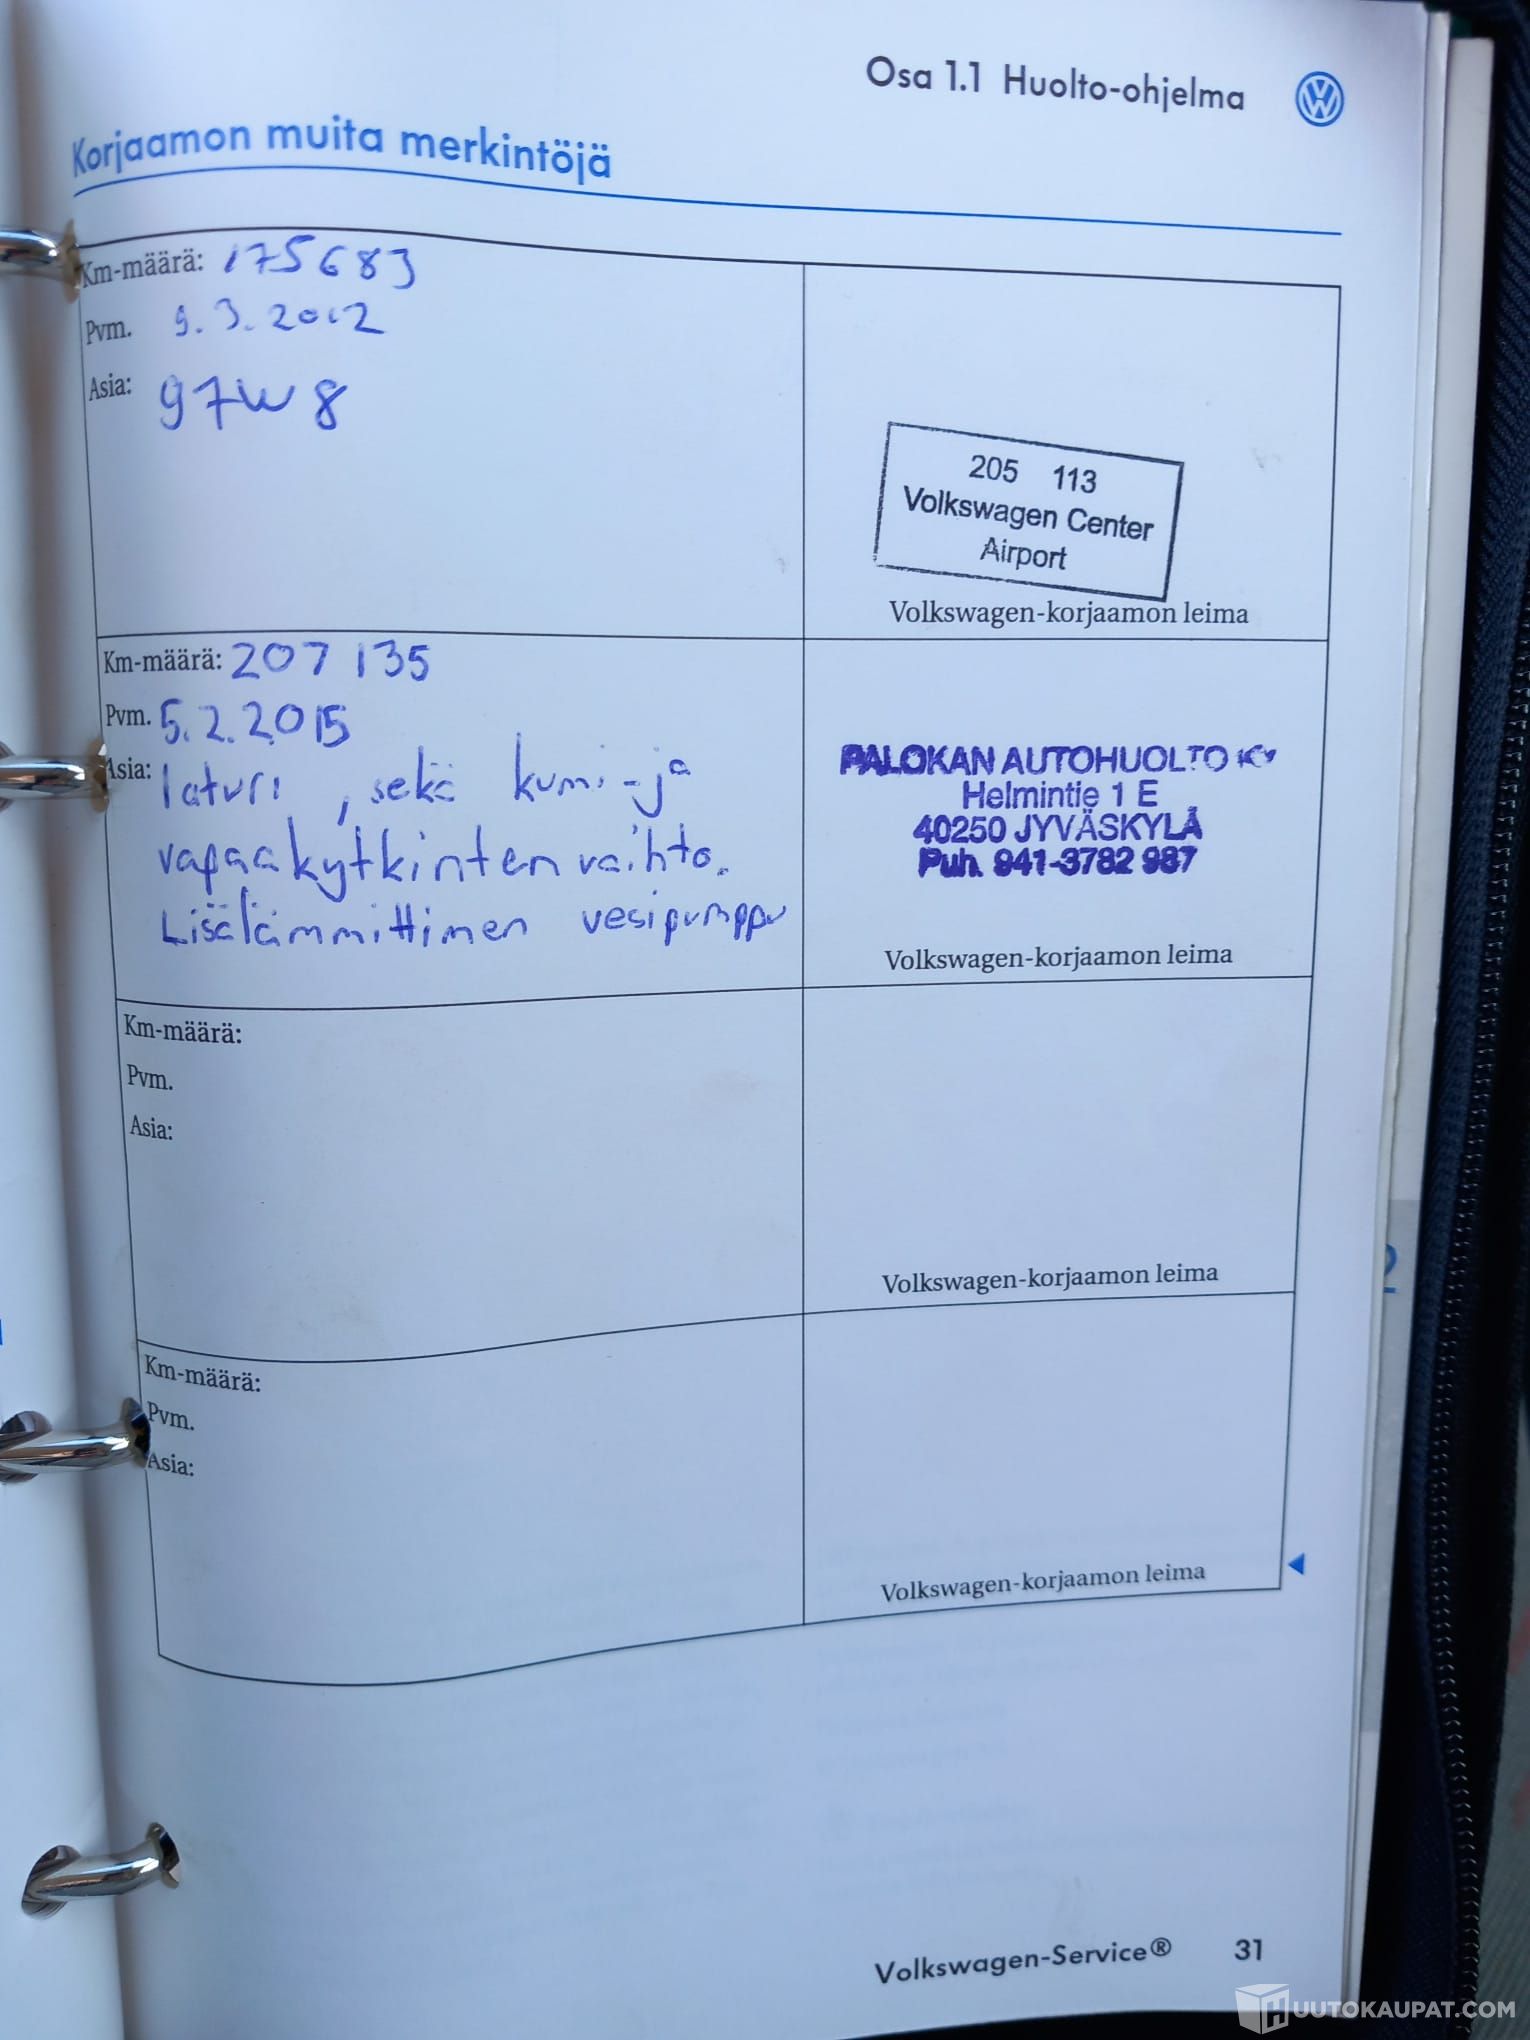 Osa 1.1 Huolto-ohjelma
Korjaamon muita merkintöjä
Km-määrä: 175683
Pvm. 9.3.2012
Asia: 97W8
205 113
Volkswagen Center
Airport
Volkswagen-korjaamon leima
Km-määrä: 207 135
Pvm. 5.2.2015
Asia: laturi, sekä kumi-ja
vapaakytkinten vaihto.
Lisälämmittimen vesipumppu
PALOKAN AUTOHUOLTO KY
Helmintie 1 E
40250 JYVÄSKYLÄ
Puh. 941-3782 987
Volkswagen-korjaamon leima
Km-määrä:
Pvm.
Asia:
Volkswagen-korjaamon leima
Km-määrä:
Pvm.
Asia:
Volkswagen-korjaamon leima
Volkswagen-Service® 31
HUUTOKAUPAT.COM